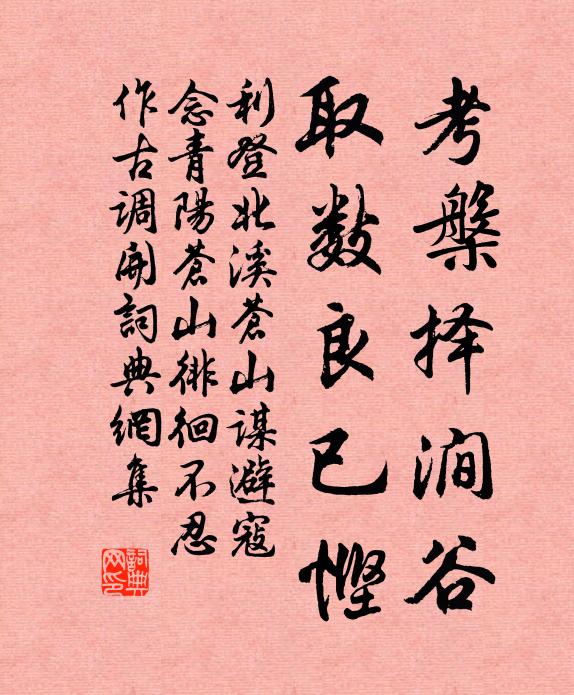 考槃择涧谷
取数良已悭
利登北溪苍山谋避寇
念青陽苍山徘徊不忍
作古调開詞典網集
詞典
网印